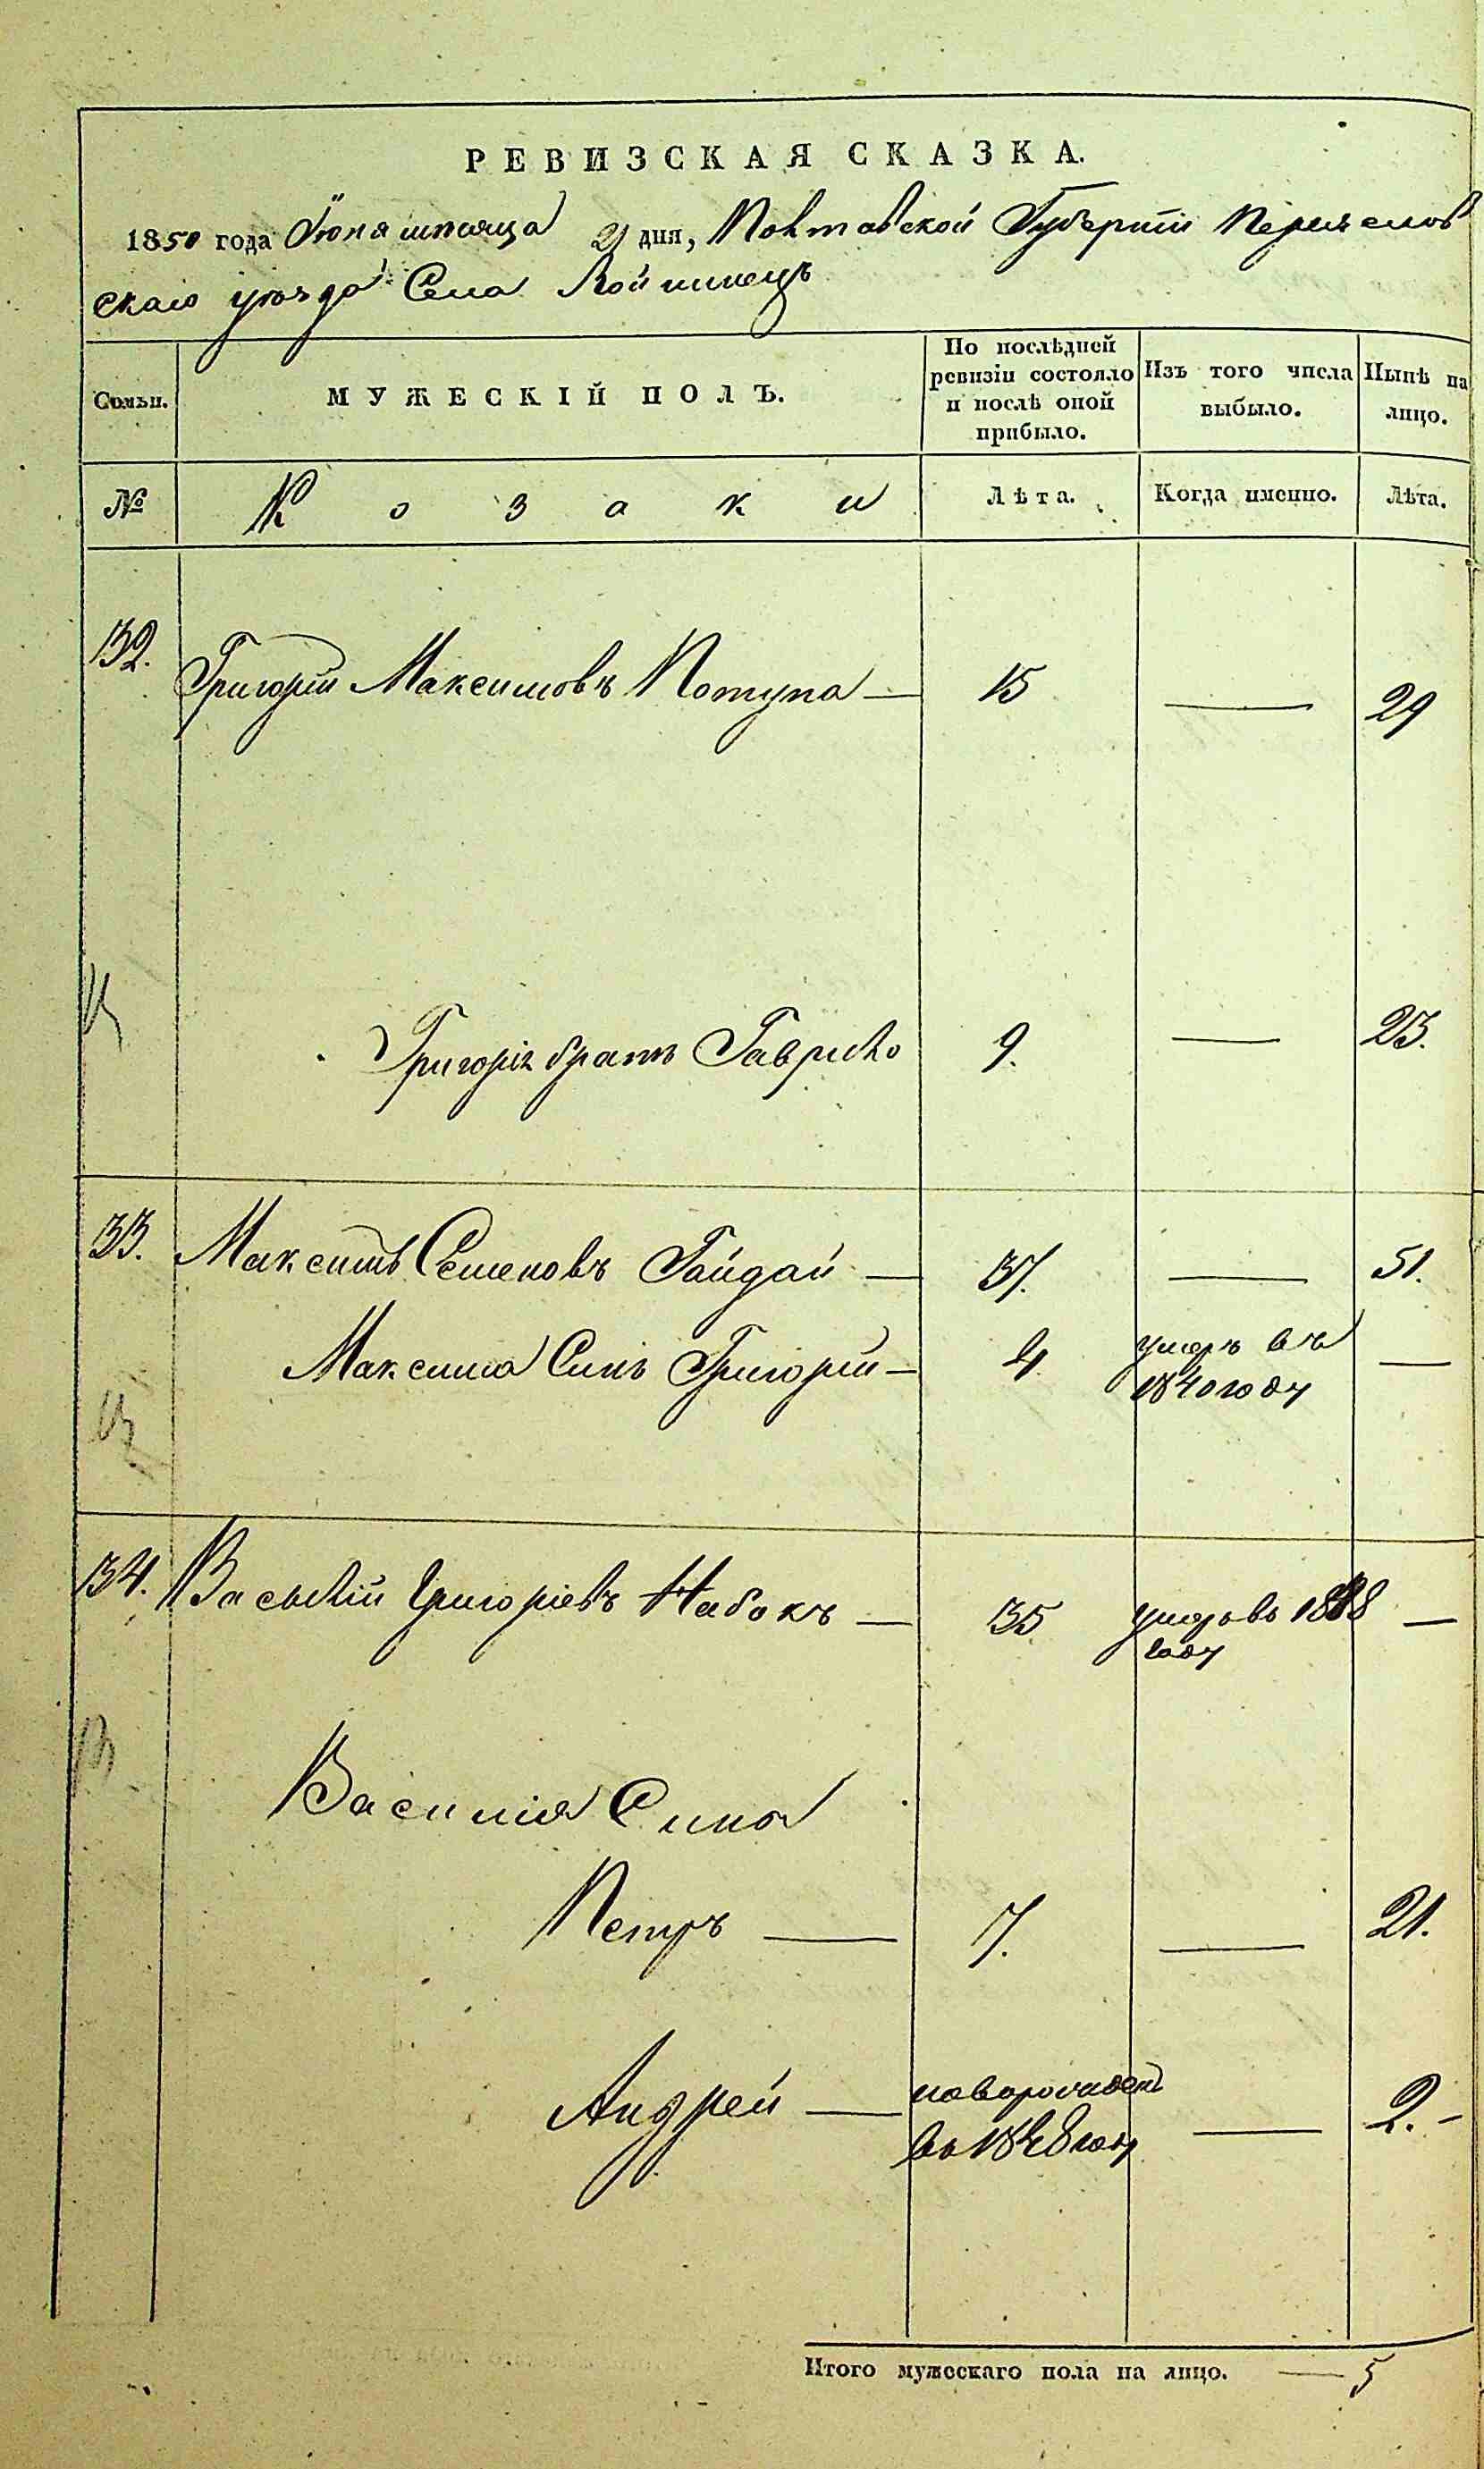 РЕВИЗСКАЯ СКАЗКА.
1850 года Іюня мѣсяца 21 дня, Полтавской Губерніи Переяслов
скаго уѣзда Села Войтовецъ
Семьи. МУЖЕСКІЙ ПОЛЪ. По послѣдней ревизіи состояло и послѣ оной прибыло. Изъ того числа выбыло. Нынѣ на лицо.
№ Козаки Лѣта. Когда именно. Лѣта.
132. Григорій Максимовъ Потупа — 15 — 29
Григорія братъ Гаврило 9. — 23.
133. Максимъ Семеновъ Гайдай — 37. — 51.
Максима Синъ Григорій — 4 умеръ въ —
1840 году
134. Василій Григоріевъ Набокъ — 35 умеръ въ 1838 —
году
Василія Сина
Петръ — 7. — 21.
Андрей — новорожден — 2. —
въ 1848 году
Итого мужескаго пола на лицо. — 5